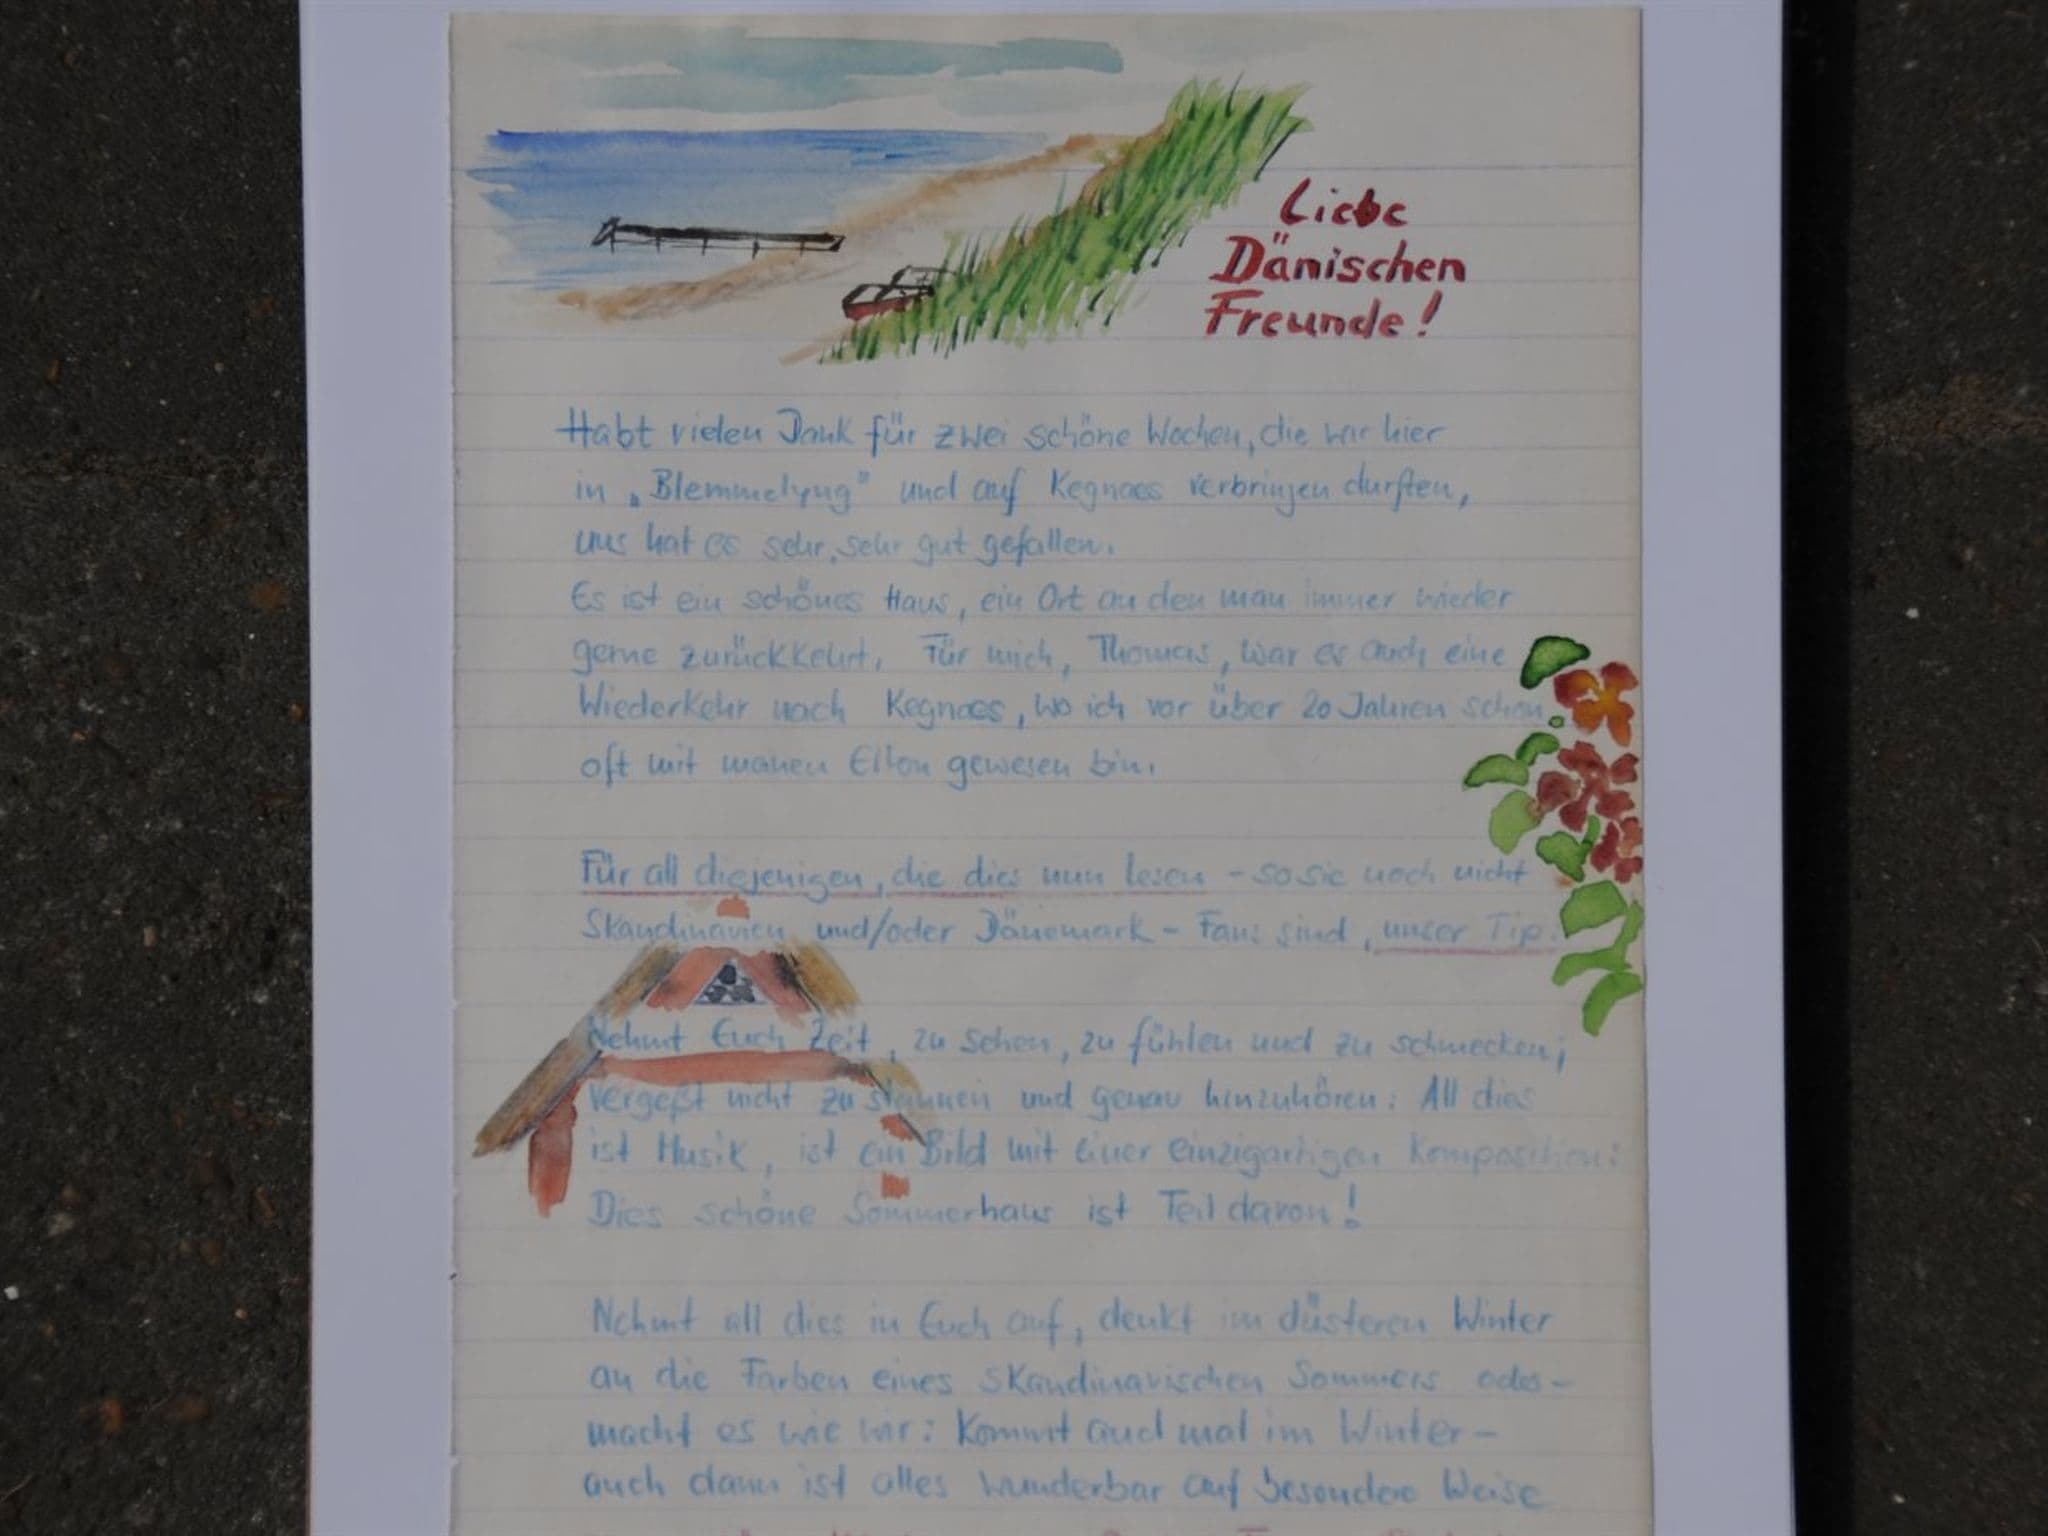 Liebe
Dänischen
Freunde!
Habt vielen Dank für zwei schöne Wochen, die wir hier
in „Blemmelyng" und auf Kegnaes verbringen durften,
uns hat es sehr, sehr gut gefallen.
Es ist ein schönes Haus, ein Ort an den man immer wieder
gerne zurückkehrt. Für mich, Thomas, war es auch eine
Wiederkehr nach Kegnaes, wo ich vor über 20 Jahren schon
oft mit meinen Eltern gewesen bin.
Für all diejenigen, die dies nun lesen - so sie noch nicht
Skandinavien und/oder Dänemark - Fans sind, unser Tip:
Nehmt Euch Zeit, zu sehen, zu fühlen und zu schmecken;
vergeßt nicht zu staunen und genau hinzuhören: All dies
ist Musik, ist ein Bild mit einer einzigartigen Komposition:
Dies schöne Sommerhaus ist Teil davon!
Nehmt all dies in Euch auf, denkt im düsteren Winter
an die Farben eines skandinavischen Sommers oder -
macht es wie wir: Kommt auch mal im Winter -
auch dann ist alles wunderbar auf besondere Weise